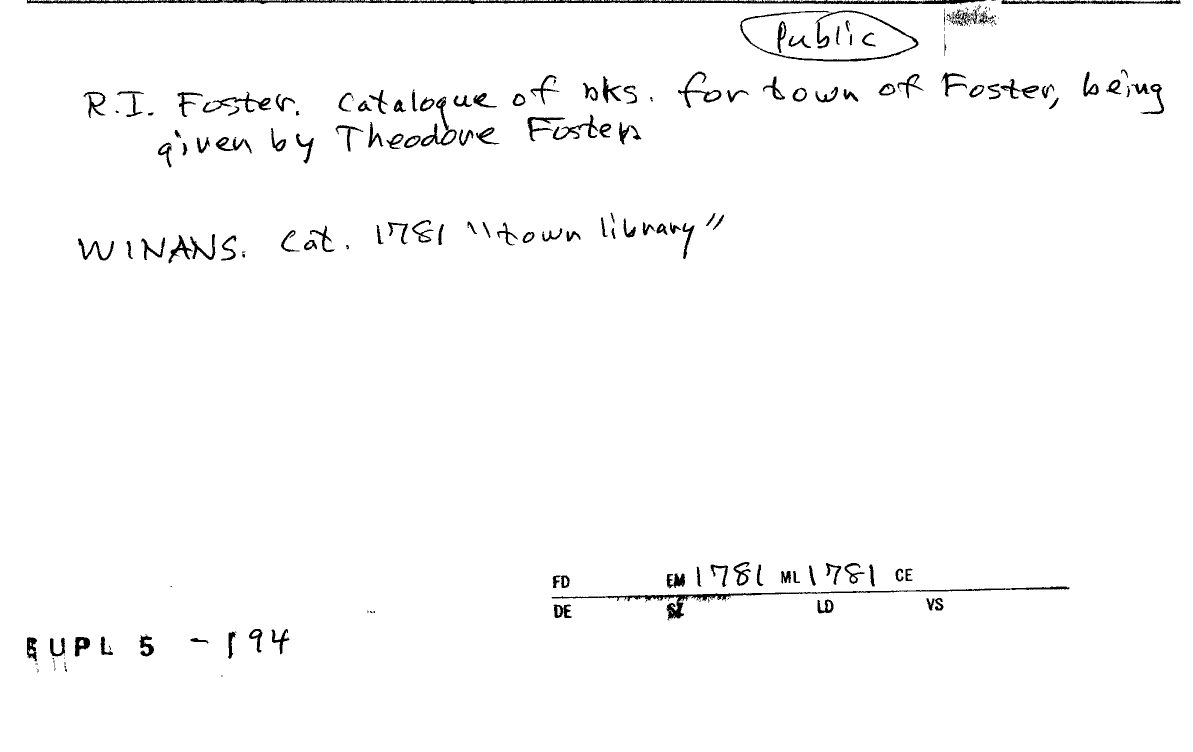 Public
R.I. Foster. Catalogue of bks. for town of Foster, being
given by Theodore Foster.
WINANS. Cat. 1781 "town library"
FD EM 1781 ML 1781 CE
DE SZ LD VS
SUPL 5 - 194